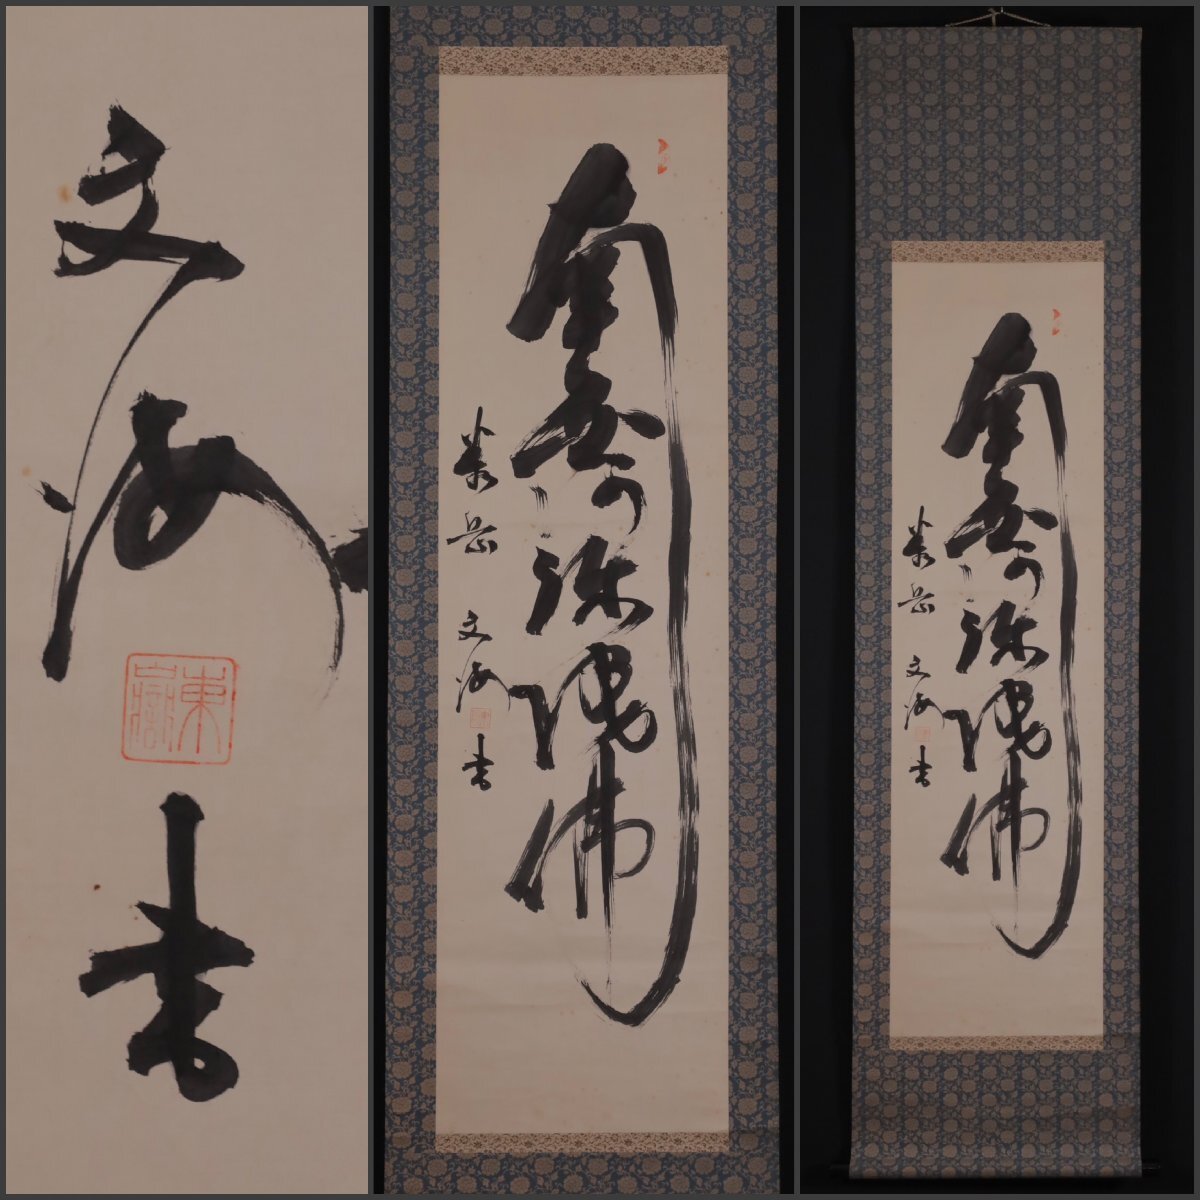 文海
東嶽
書
南無阿弥陀佛
岳 文海書
南無阿弥陀佛
岳 文海書